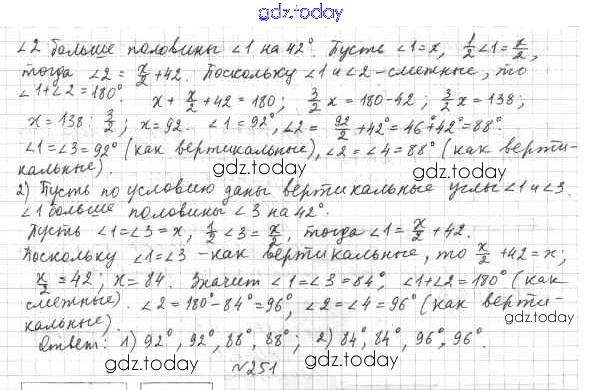 gdz.today
∠2 больше половины ∠1 на 42°. Пусть ∠1=x, 1/2∠1=x/2,
тогда ∠2 = x/2+42. Поскольку ∠1 и ∠2 - смежные, то
∠1+∠2=180°. x + x/2 + 42 = 180; 3/2 x = 180-42; 3/2 x = 138;
x = 138 : 3/2; x = 92. ∠1 = 92°, ∠2 = 92/2 + 42° = 46°+42° = 88°.
∠1=∠3=92° (как вертикальные), ∠2=∠4=88° (как верти-
кальные).
gdz.today
gdz.today
2) Пусть по условию даны вертикальные углы ∠1 и ∠3.
∠1 больше половины ∠3 на 42°.
Пусть ∠1=∠3=x, 1/2∠3=x/2, тогда ∠1=x/2+42.
gdz.today
Поскольку ∠1=∠3 - как вертикальные, то x/2+42=x;
x/2=42; x=84. Значит ∠1=∠3=84°, ∠1+∠2=180° (как
смежные). ∠2=180°-84°=96°, ∠2=∠4=96° (как верти-
кальные).
gdz.today
gdz.today
Ответ: 1) 92°, 92°, 88°, 88°; 2) 84°, 84°, 96°, 96°.
gdz.today
№251
gdz.today